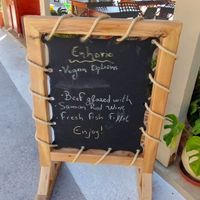 Ephoria
- Vegan Options
- Beef glazed with
Samian Red Wine
- Fresh Fish Fillet
Enjoy!